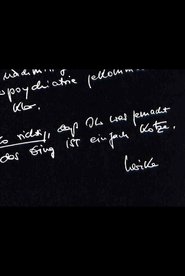 psychiatrie gekomme
klar.
so richtig, daß Ihr was gemacht
das Ding ist einfach Kotze.